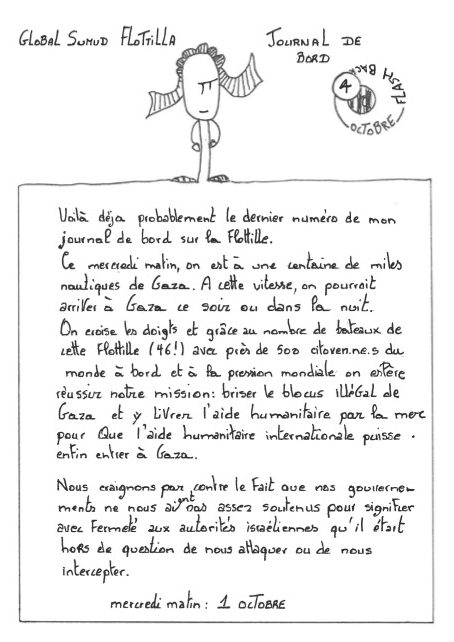 GLOBAL SUMUD FLOTTILLA
JOURNAL DE
BORD
4
FLASH BACK
OCTOBRE
Voilà déja probablement le dernier numéro de mon
journal de bord sur la flottille.
Ce mercredi matin, on est à une centaine de miles
nautiques de Gaza. A cette vitesse, on pourrait
arriver à Gaza ce soir ou dans la nuit.
On croise les doigts et grâce au nombre de bateaux de
cette Flottille (46!) avec près de 500 citoyen.ne.s du
monde à bord et à la pression mondiale on espère
réussir notre mission: briser le blocus illégal de
Gaza et y livrer l'aide humanitaire par la mer
pour que l'aide humanitaire internationale puisse
enfin entrer à Gaza.
Nous craignons par contre le fait que nos gouverne-
ments ne nous aient pas assez soutenus pour signifier
avec fermeté aux autorités israéliennes qu'il était
hors de question de nous attaquer ou de nous
intercepter.
mercredi matin: 1 OCTOBRE